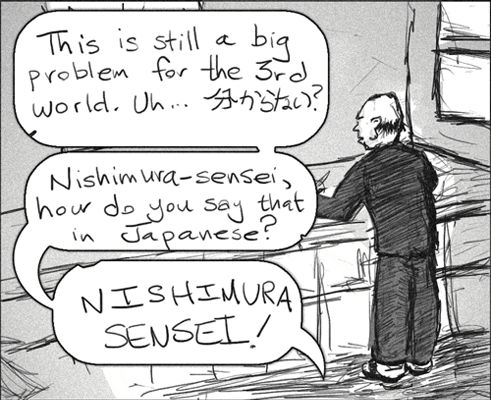 This is still a big
problem for the 3rd
world. Uh... 分からない?
Nishimura-sensei,
how do you say that
in Japanese?
NISHIMURA
SENSEI!